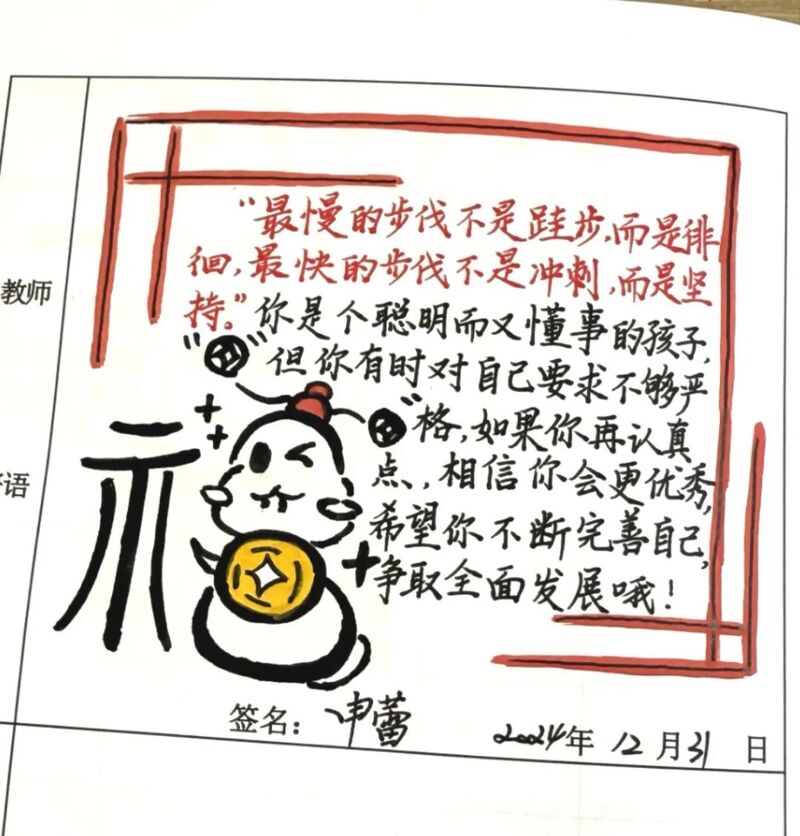 “最慢的步伐不是跬步,而是徘
徊,最快的步伐不是冲刺,而是坚
持。”你是个聪明而又懂事的孩子,
教师
但你有时对自己要求不够严
格,如果你再认真
点,相信你会更优秀,
语
希望你不断完善自己,
争取全面发展哦!
签名:申蕾 2024年 12月31 日